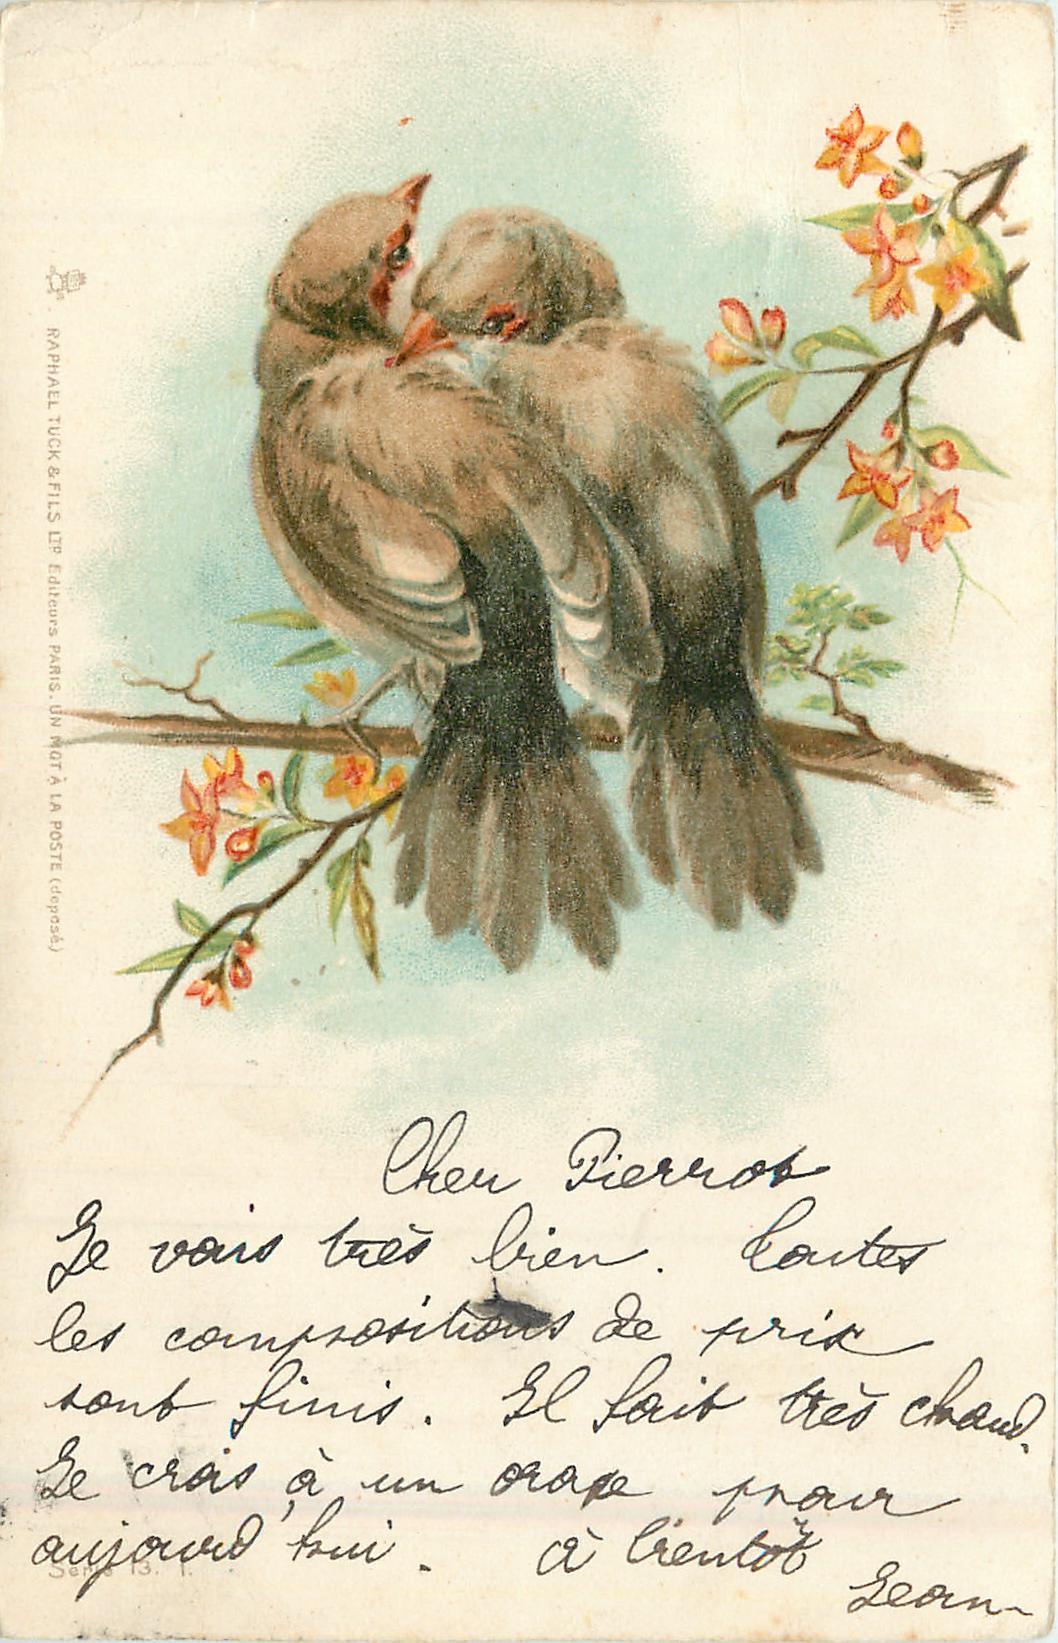 RAPHAEL TUCK & FILS LTD Editeurs PARIS. UN MOT À LA POSTE (deposé)
Cher Pierrot
Je vais très bien. Toutes
les compositions de prix
sont finis. Il fait très chaud.
Je crois à un orage pour
aujourd'hui. à bientôt
Jean
Série 13. 1.